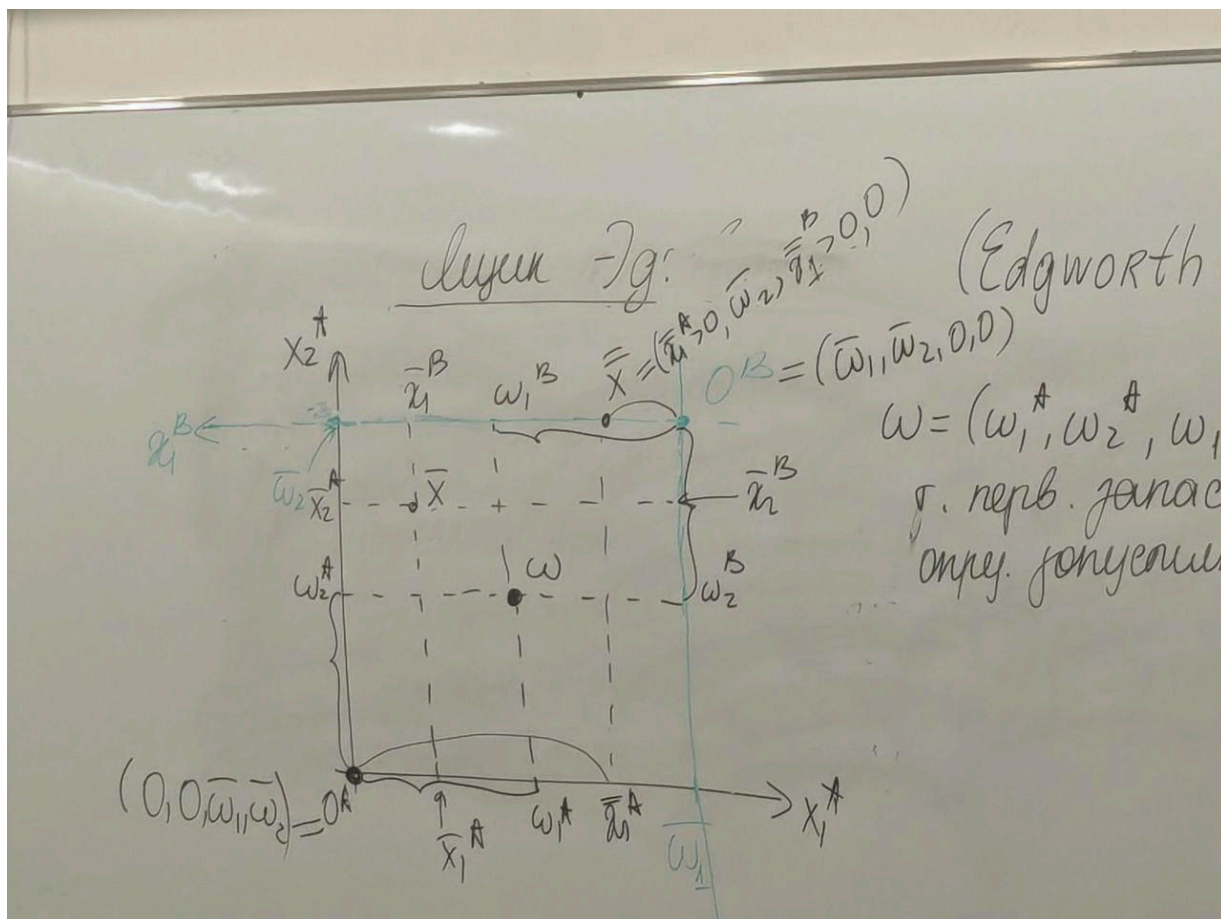 Ящик Эд.
(Edgworth
x̿ = (x̿₁ᴬ > 0, ω̄₂, x̿₁ᴮ > 0, 0)
Oᴮ = (ω̄₁, ω̄₂, 0, 0)
ω = (ω₁ᴬ, ω₂ᴬ, ω₁
т. перв. запас
опр.
x₂ᴬ
x̄₁ᴮ
ω₁ᴮ
x₁ᴮ
ω̄₂
x̄₂ᴬ
x̄
x̄₂ᴮ
ω₂ᴬ
ω
ω₂ᴮ
(0, 0, ω̄₁, ω̄₂) = Oᴬ
x̄₁ᴬ
ω₁ᴬ
x̿₁ᴬ
ω̄₁
x₁ᴬ